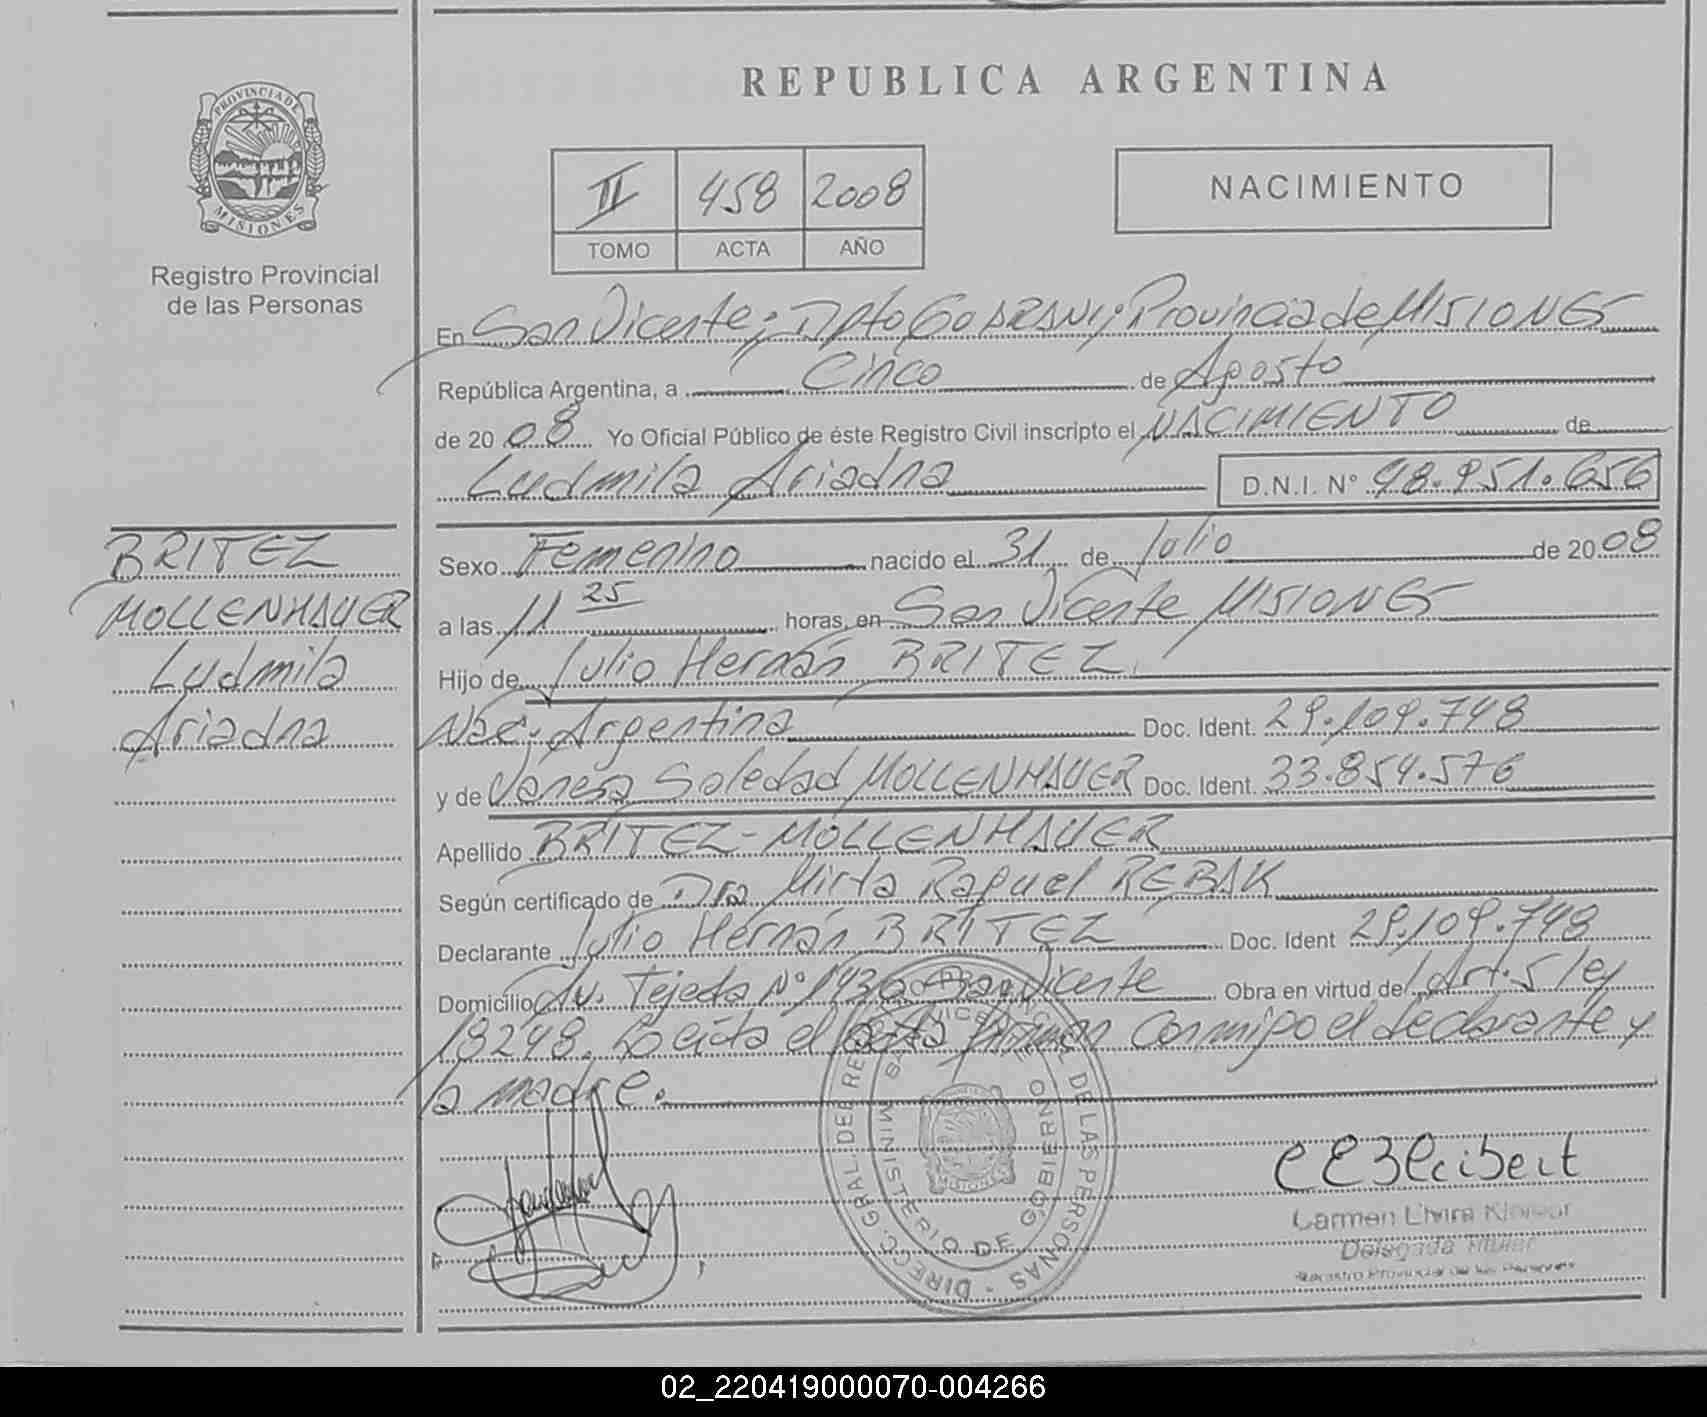 REPUBLICA ARGENTINA
PROVINCIA DE
MISIONES
Registro Provincial
de las Personas
II 458 2008
TOMO ACTA AÑO
NACIMIENTO
En San Vicente; Dpto GUARANI; Provincia de MISIONES
República Argentina, a Cinco de Agosto
de 20 08 Yo Oficial Público de éste Registro Civil inscripto el NACIMIENTO de
Ludmila Ariadna D.N.I. N° 48.951.656
BRITEZ
MOLLENHAUER
Ludmila
Ariadna
Sexo Femenino nacido el 31 de Julio de 20 08
a las 11 25 horas, en San Vicente MISIONES
Hijo de Julio Hernán BRITEZ.
Nac; Argentina Doc. Ident. 29.109.748
y de Vanesa Soledad MOLLENHAUER Doc. Ident. 33.854.576
Apellido BRITEZ-MOLLENHAUER
Según certificado de Dra Mirta Raquel REBAK
Declarante Julio Hernán BRITEZ Doc. Ident 29.109.748
Domicilio Av. Tejeda N° 1430 San Vicente Obra en virtud del Art. 5 ley
18248. Leída el acta firman conmigo el declarante y
la madre.
DIRECC. GRAL. DE REG. DE LAS PERSONAS
MINISTERIO DE GOBIERNO
MISIONES
Carmen Elvira
Delegada Titular
Registro Provincial de las Personas
02_220419000070-004266